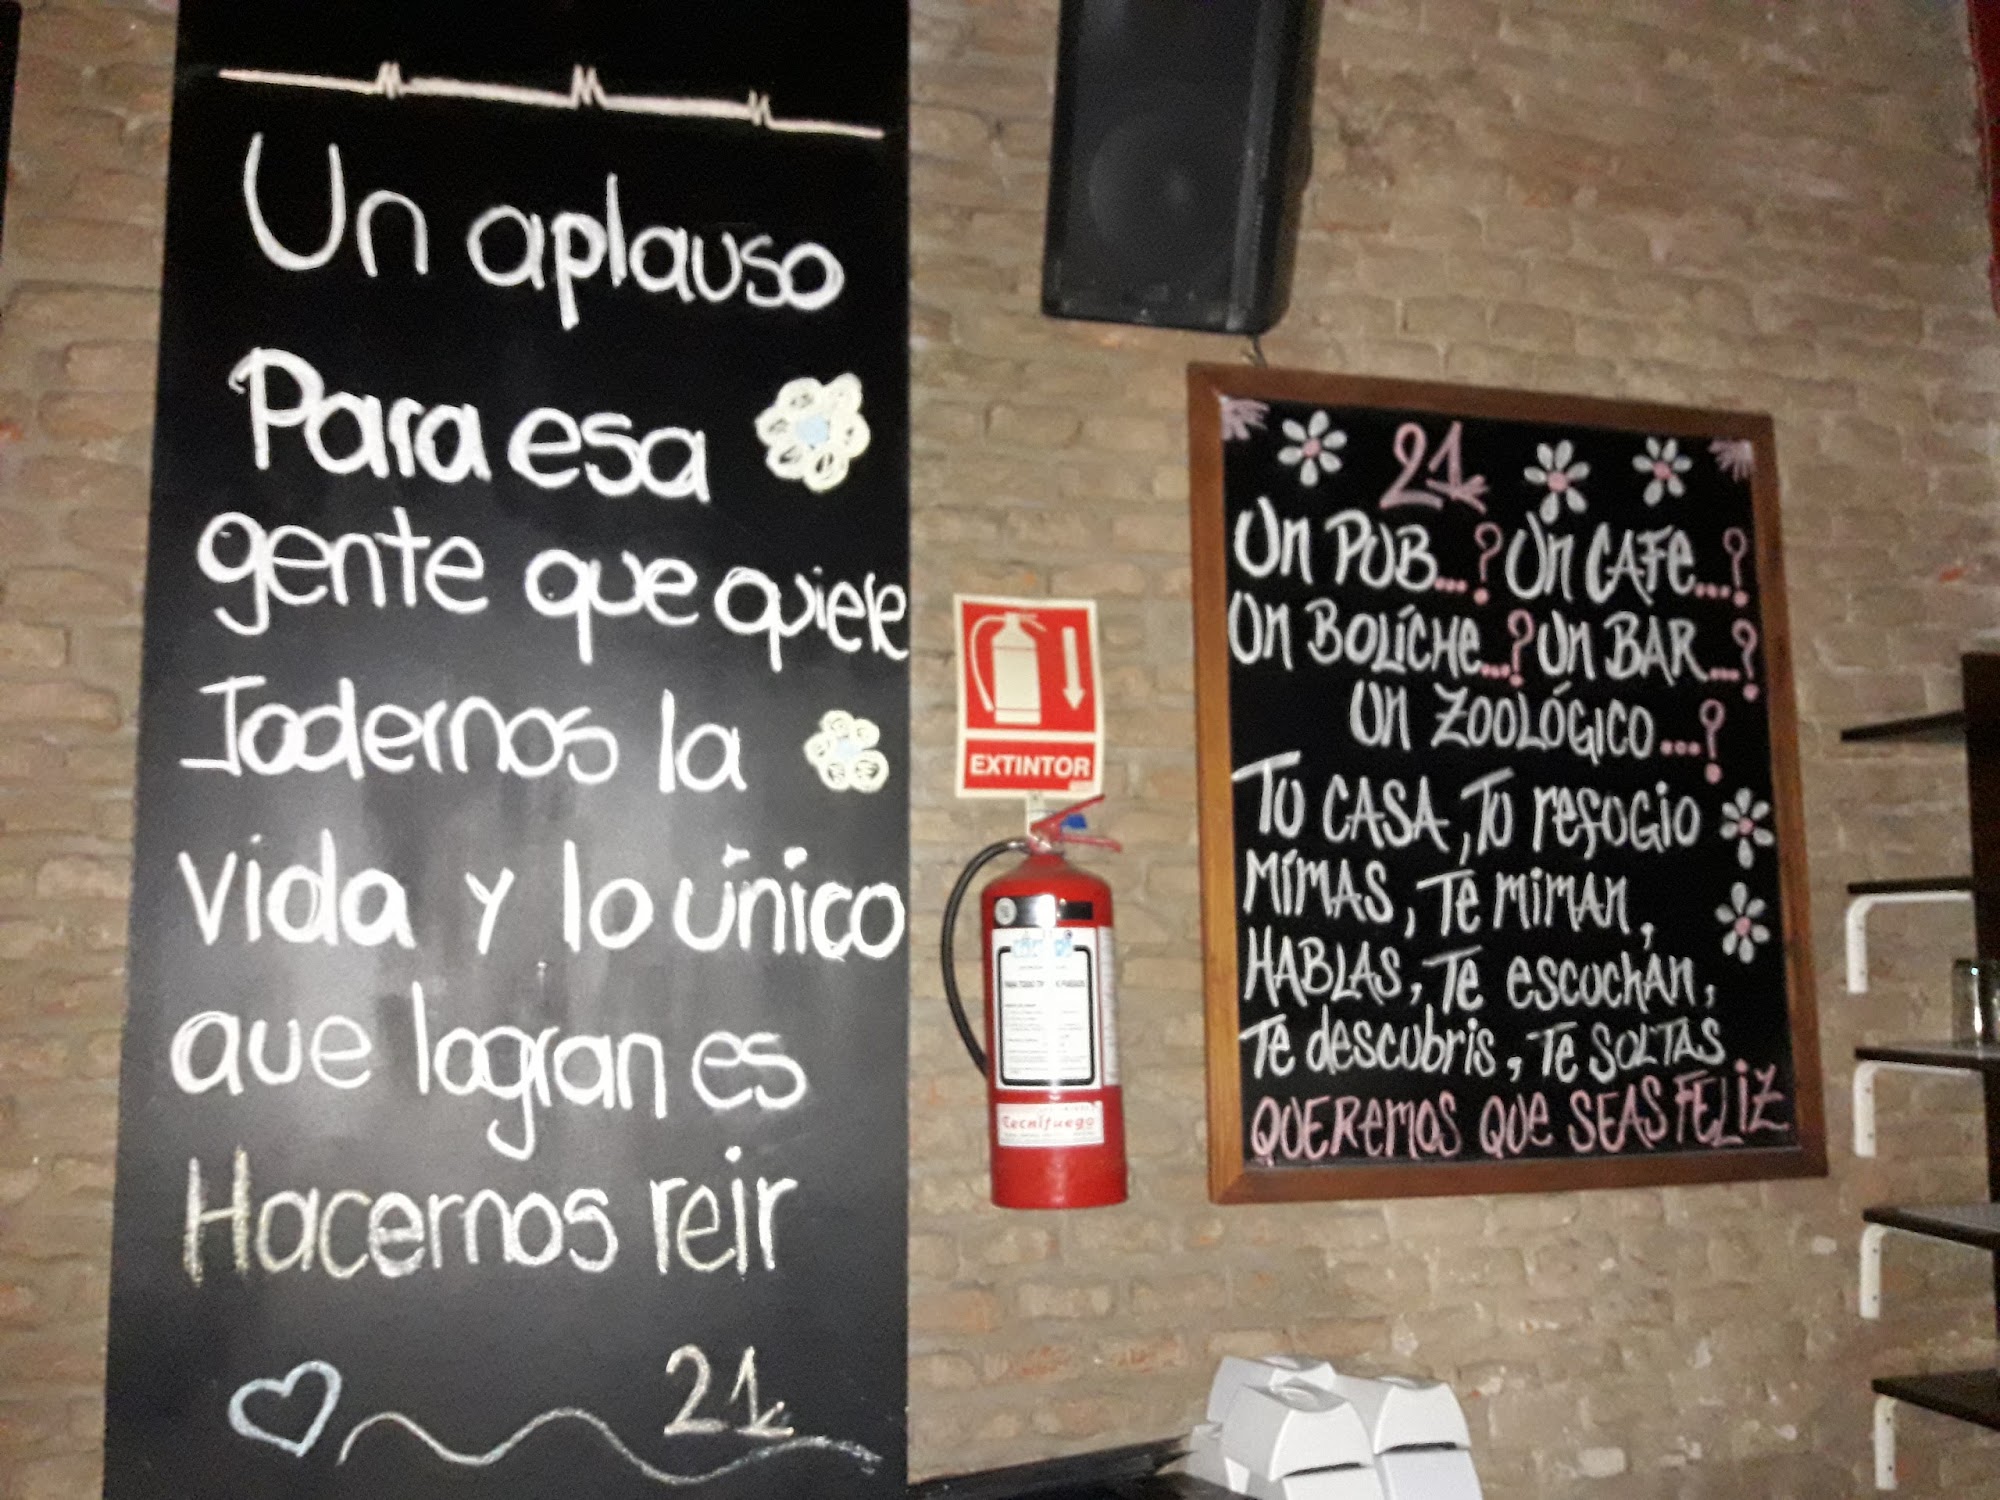 Un aplauso
Para esa
gente que quiere
Jodernos la
vida y lo único
que logran es
Hacernos reir
21
EXTINTOR
tecnifuego
21
Un PUB...? Un CAFE...?
Un BOLÍCHE...? Un BAR...?
Un ZOOLÓGICO...?
TU CASA, TU refUGiO
MÍMAS, Te miman,
HABLAS, Te escuchan,
Te descubris, Te SOLTAS
QUEREMOS QUe SEAS FELIZ